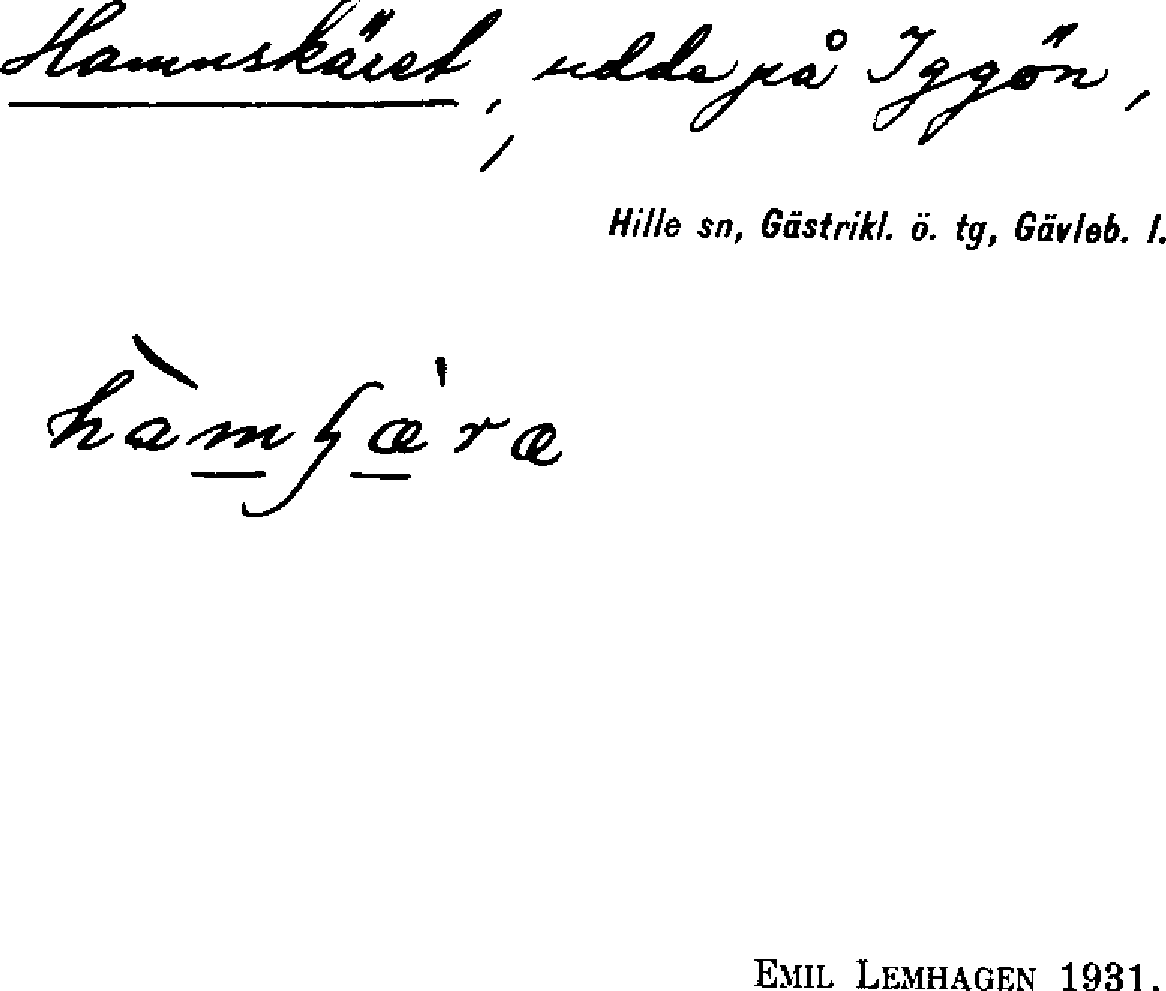 Hamnskäret, udde på Iggön,
Hille sn, Gästrikl. ö. tg, Gävleb. l.
EMIL LEMHAGEN 1931.